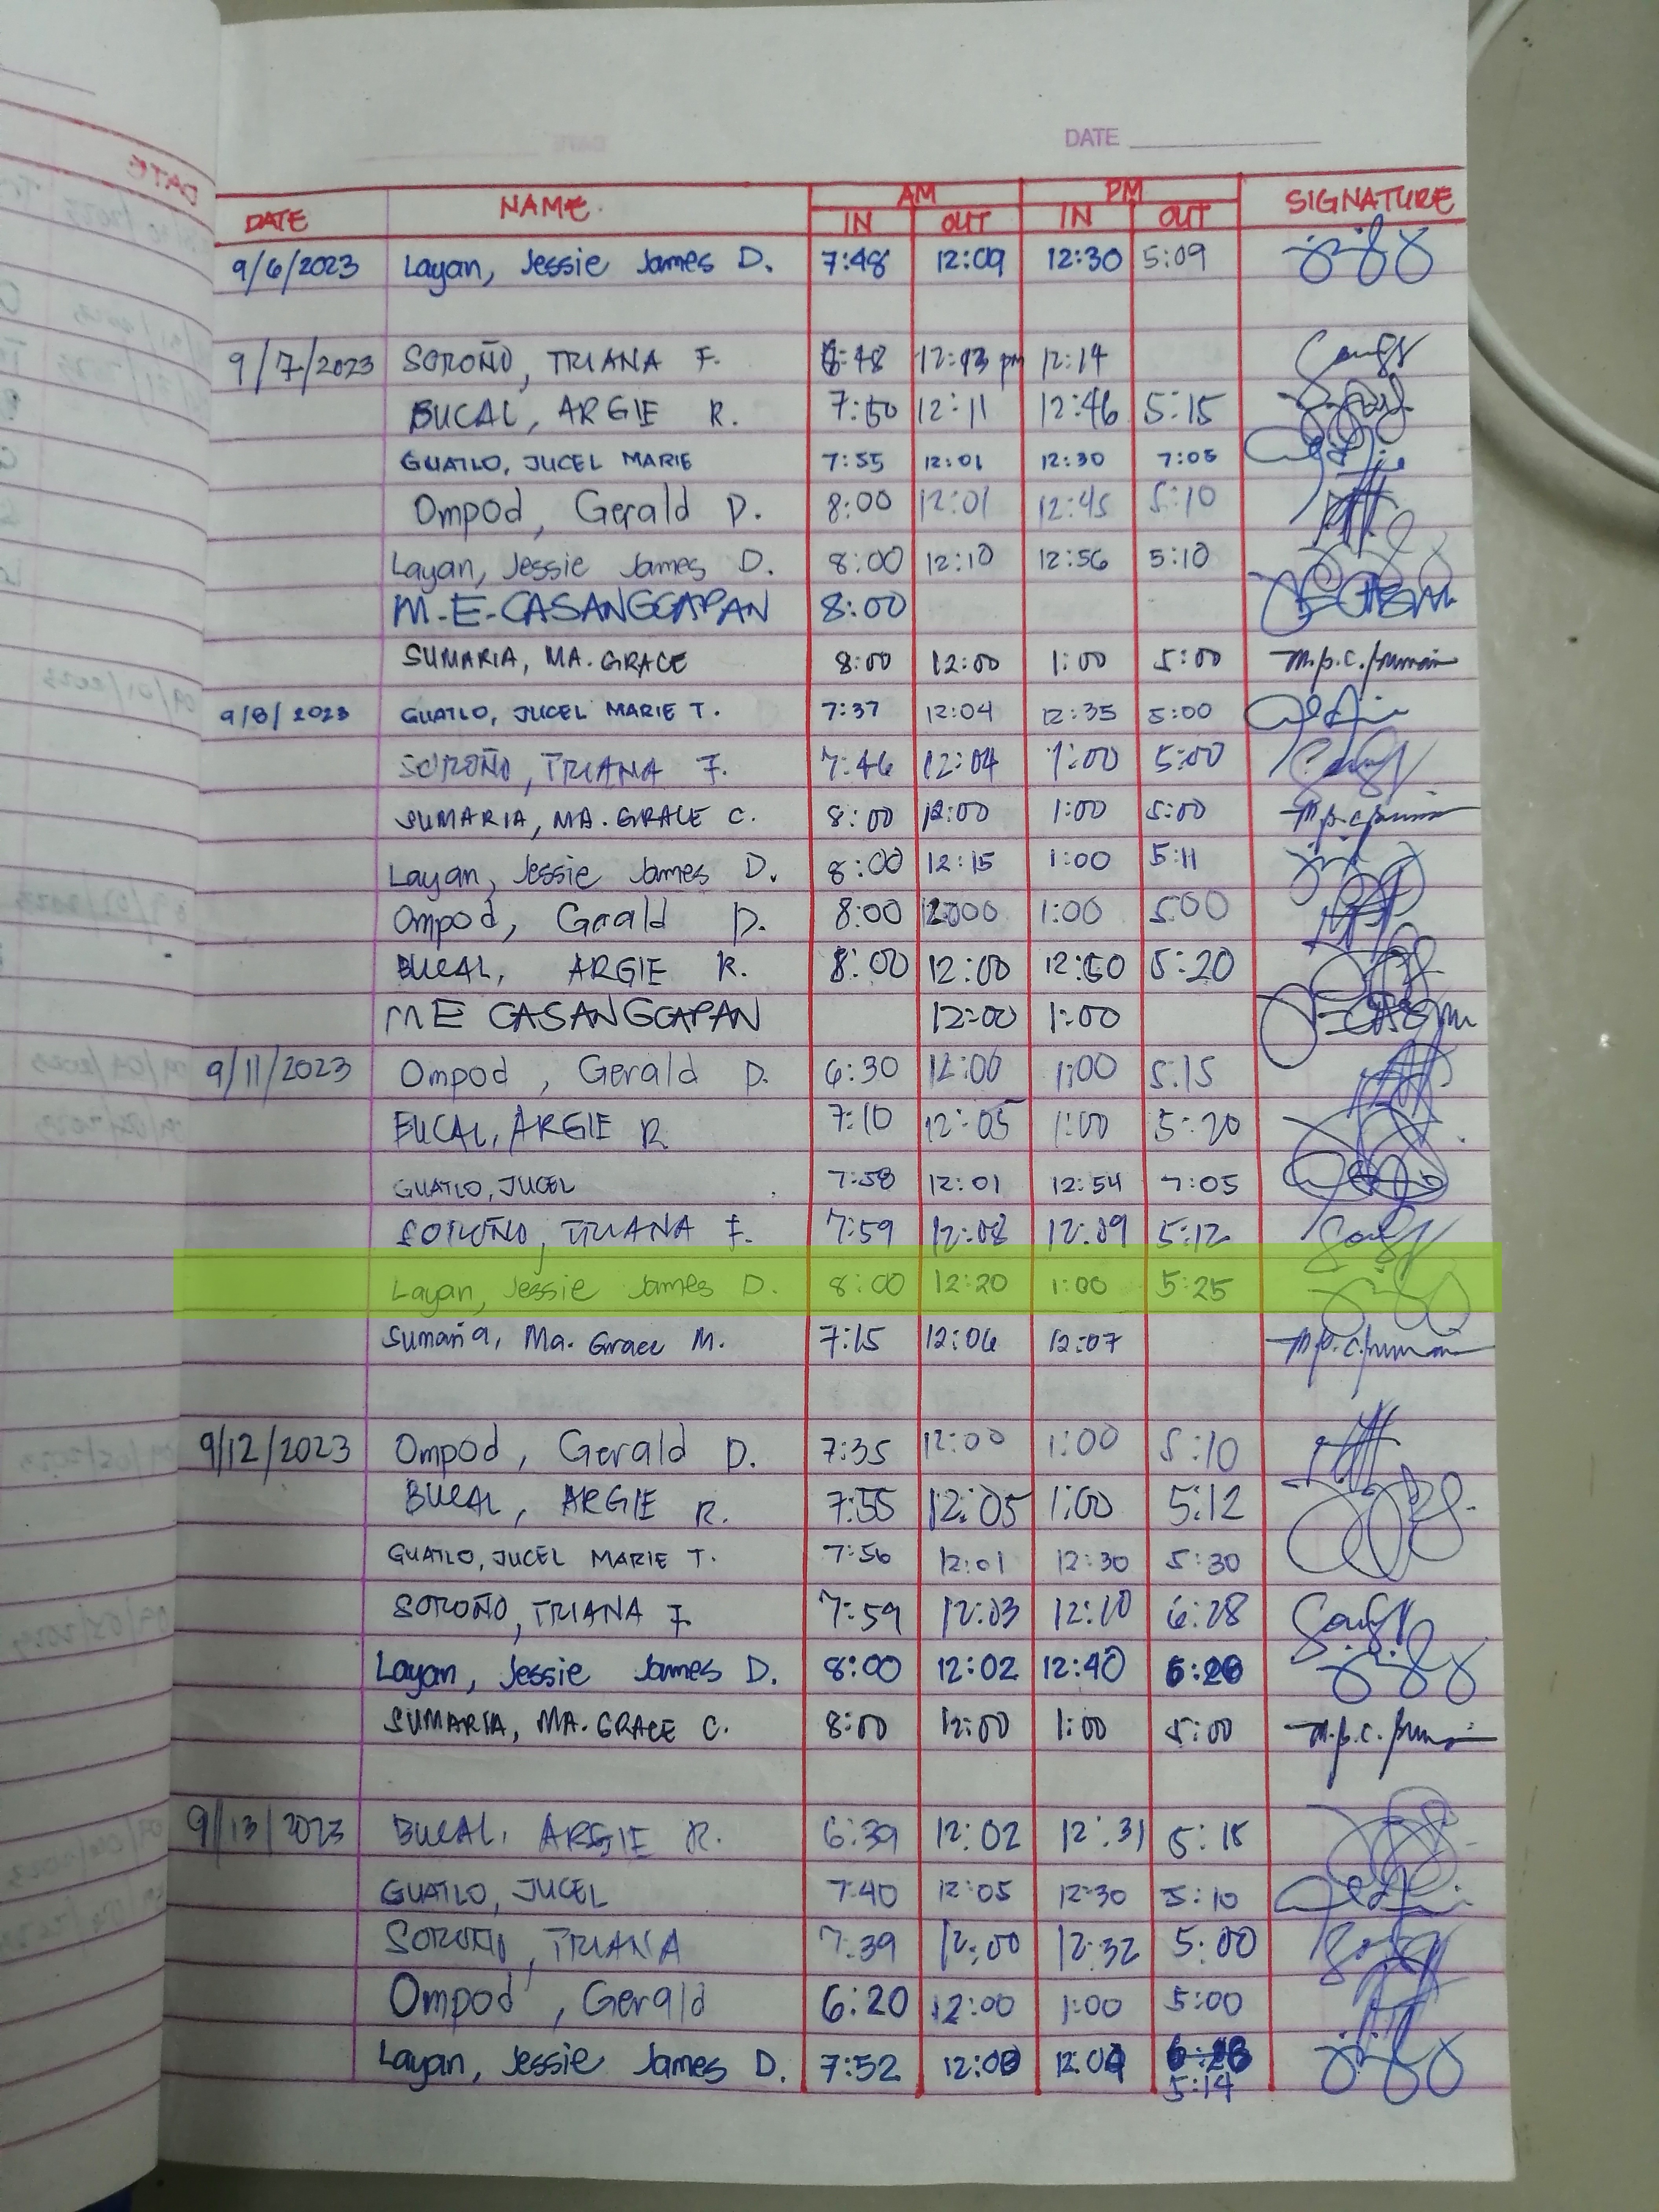 DATE
DATE NAME. AM PM SIGNATURE
IN OUT IN OUT
9/6/2023 Layan, Jessie James D. 7:48 12:09 12:30 5:09
9/7/2023 SOROÑO, TRIANA F. 12:13 pm 12:14
BUCAL, ARGIE R. 7:50 12:11 12:46 5:15
GUATLO, JUCEL MARIE 7:55 12:01 12:30 7:05
Ompod, Gerald D. 8:00 12:01 12:45 5:10
Layan, Jessie James D. 8:00 12:10 12:56 5:10
M-E-CASANGGAPAN 8:00
SUMARIA, MA. GRACE 8:00 12:00 1:00 5:00
9/8/2023 GUATLO, JUCEL MARIE T. 7:37 12:04 12:35 5:00
SOROÑO, TRIANA F. 7:46 12:04 1:00 5:00
SUMARIA, MA. GRACE C. 8:00 12:00 1:00 5:00
Layan, Jessie James D. 8:00 12:15 1:00 5:11
Ompod, Gerald D. 8:00 1:00 5:00
BUCAL, ARGIE R. 8:00 12:00 5:20
M E CASANGGAPAN 12:00 1:00
9/11/2023 Ompod, Gerald D. 6:30 12:00 1:00 5:15
BUCAL, ARGIE R 7:10 12:05 1:00 5:20
GUATLO, JUCEL 7:58 12:01 12:54 7:05
SOROÑO, TRIANA F. 7:59 12:08 12:09 5:12
Layan, Jessie James D. 8:00 12:20 1:00 5:25
Sumaria, Ma. Grace M. 7:15 12:06 12:07
9/12/2023 Ompod, Gerald D. 7:35 12:00 1:00 5:10
BUCAL, ARGIE R. 7:55 12:05 1:00 5:12
GUATLO, JUCEL MARIE T. 7:56 12:01 12:30 5:30
SOROÑO, TRIANA F. 7:59 12:03 12:10 6:28
Layan, Jessie James D. 8:00 12:02 12:40
SUMARIA, MA. GRACE C. 8:00 12:00 1:00 5:00
9/13/2023 BUCAL, ARGIE R. 6:39 12:02 12:31 5:15
GUATLO, JUCEL 7:40 12:05 12:30 5:10
SOROÑO, TRIANA 7:39 12:00 12:32 5:00
Ompod, Gerald 6:20 12:00 1:00 5:00
Layan, Jessie James D. 7:52
5:14